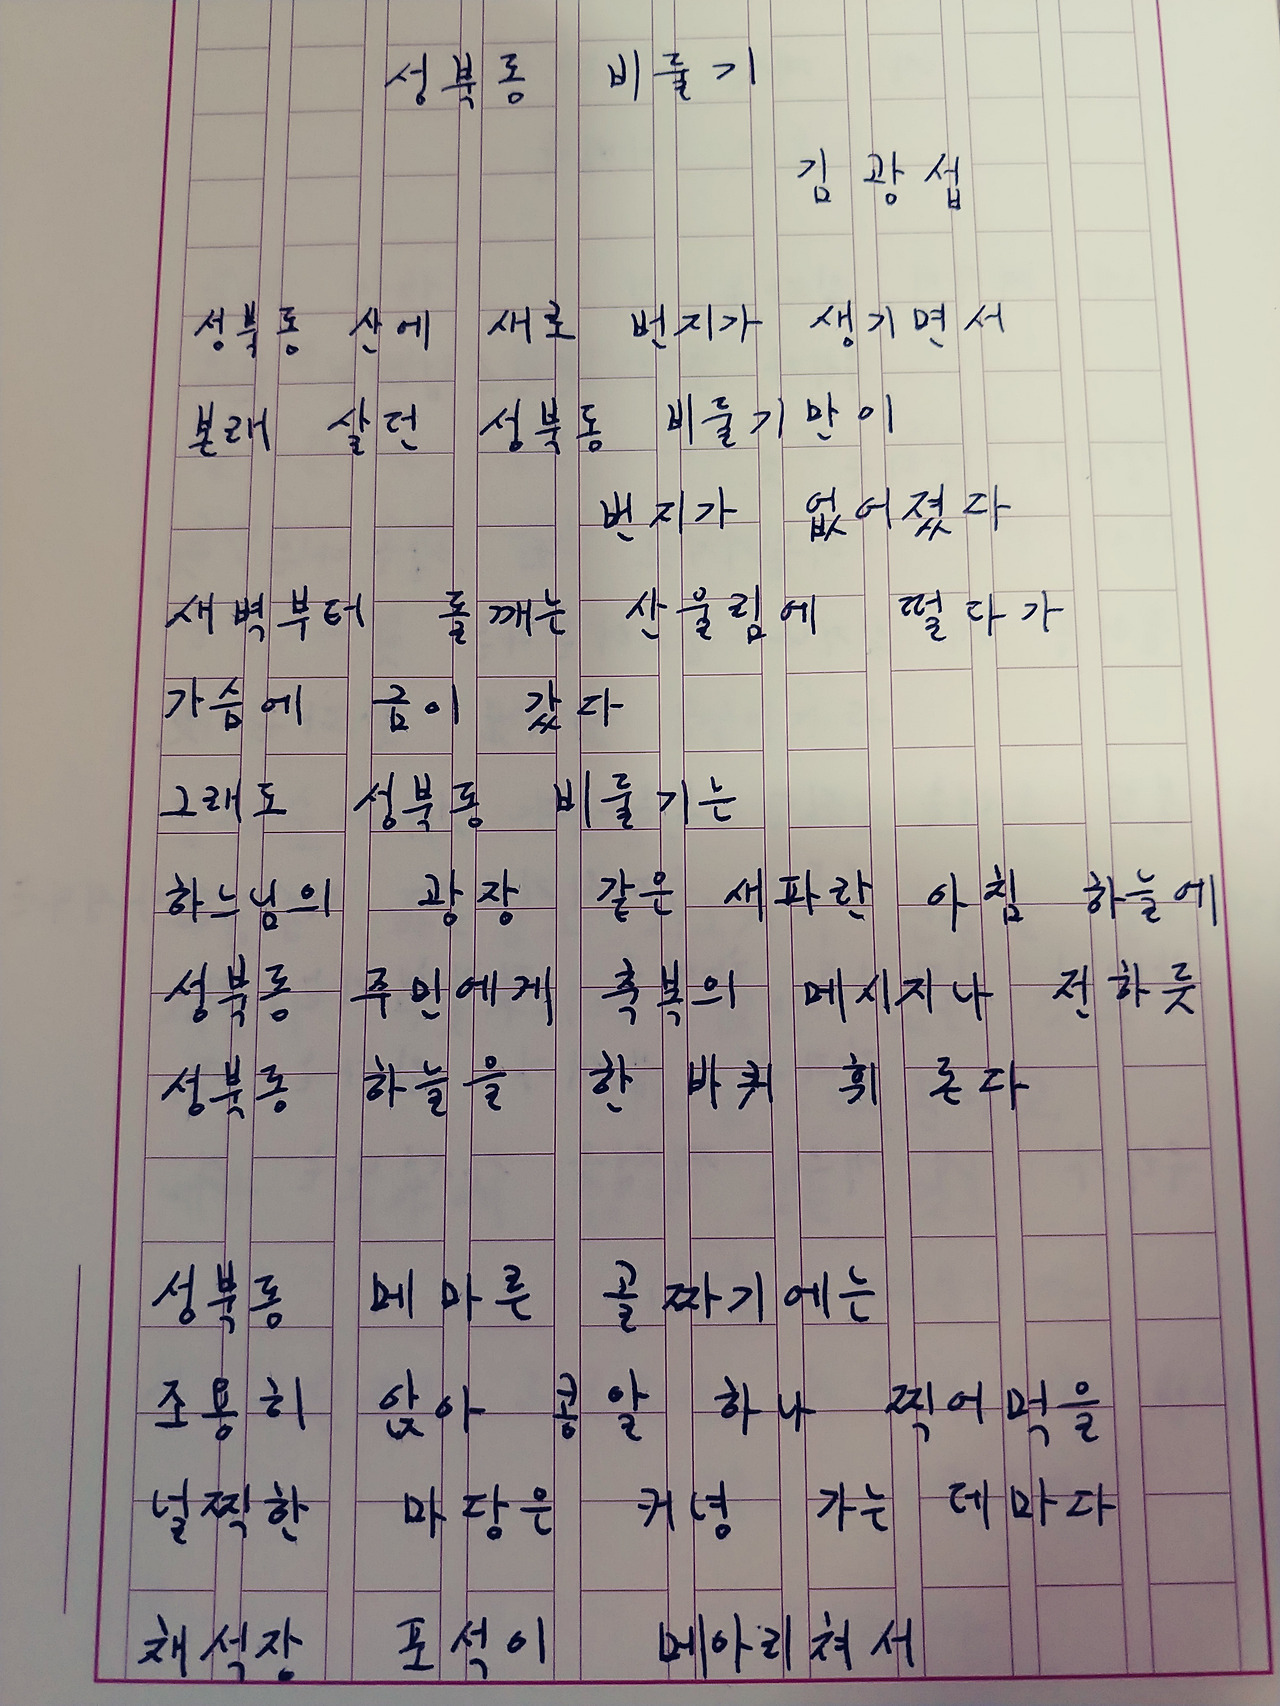 성북동 비둘기
김광섭
성북동 산에 새로 번지가 생기면서
본래 살던 성북동 비둘기만이
번지가 없어졌다
새벽부터 돌 깨는 산울림에 떨다가
가슴에 금이 갔다
그래도 성북동 비둘기는
하느님의 광장 같은 새파란 아침 하늘에
성북동 주민에게 축복의 메시지나 전하듯
성북동 하늘을 한 바퀴 휘 돈다
성북동 메마른 골짜기에는
조용히 앉아 콩알 하나 찍어먹을
널찍한 마당은 커녕 가는 데마다
채석장 포석이 메아리쳐서